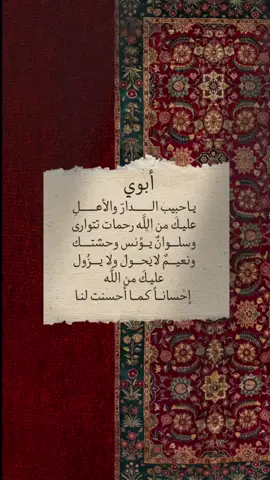 أبوي
ياحبيب الـــدارّ والأهــلِ
عليكَ من اللَّه رحمات تتوارى
وسلــوانٌ يــؤنس وحشتــك
ونعيــمٌ لايحــول ولا يــزُول
عليكَ من اللَّه
إحسانــاً كمــا أحسنت لنــا